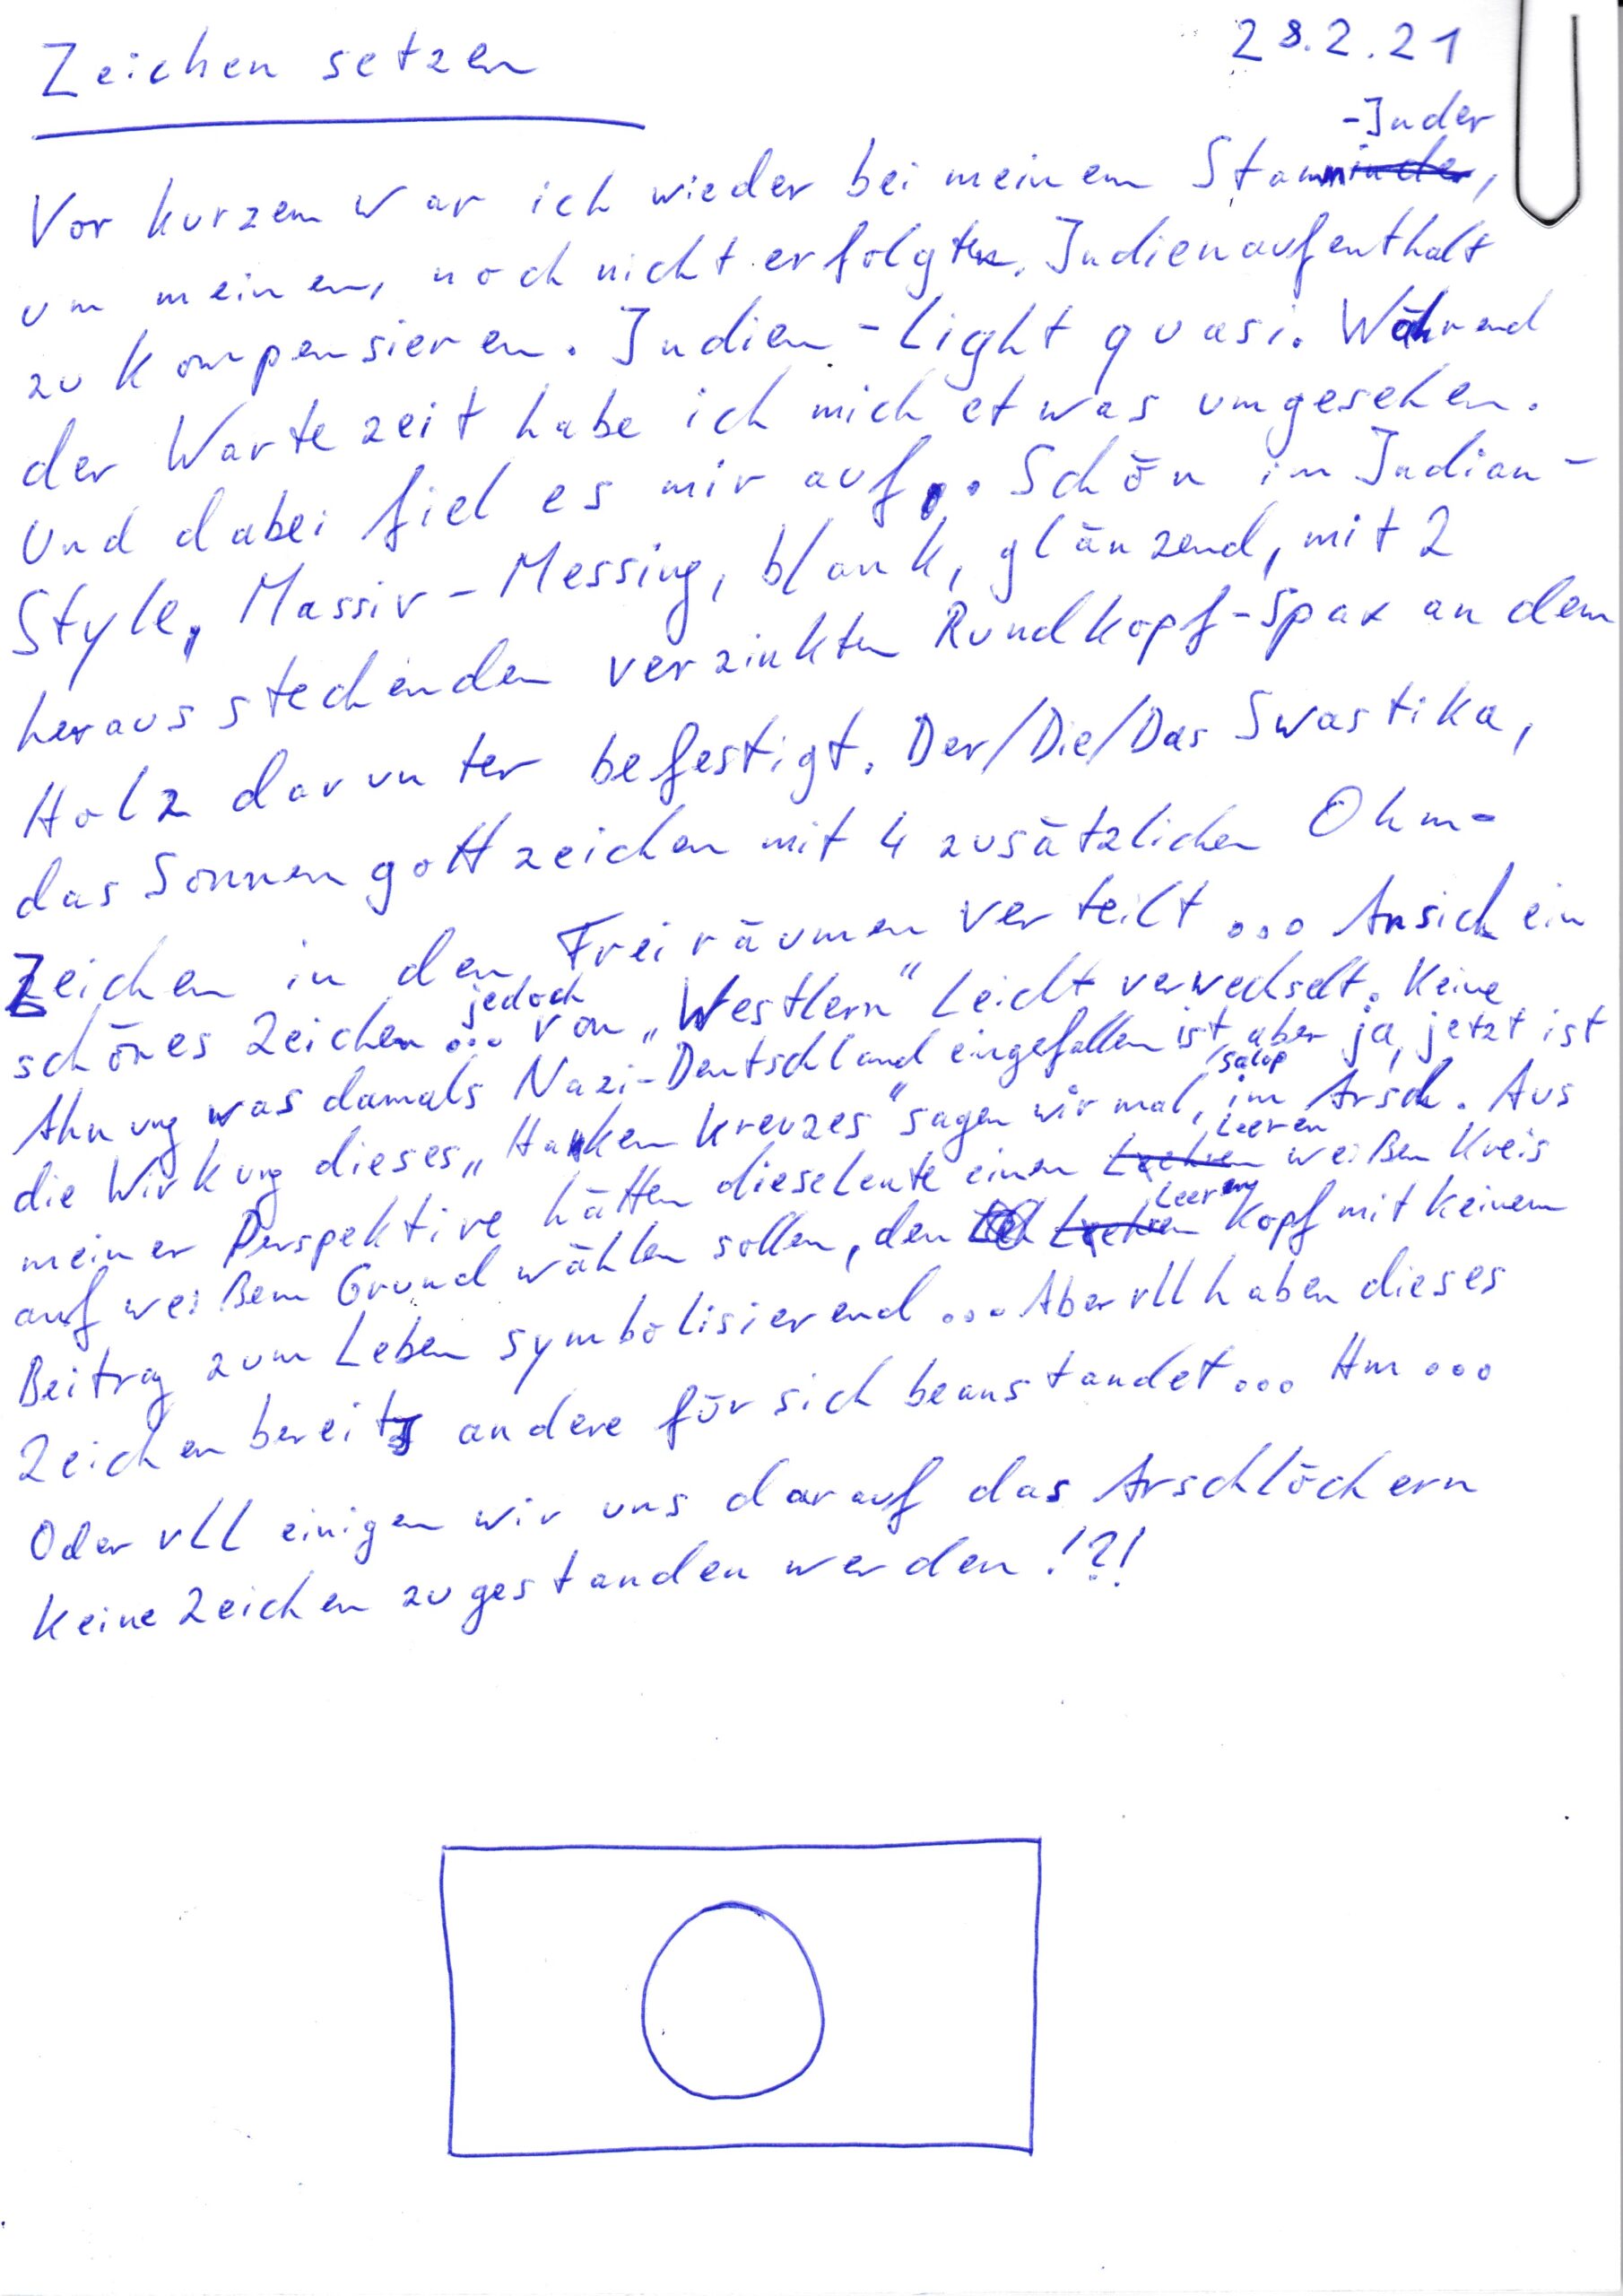 Zeichen setzen
28.2.21
Vor kurzem war ich wieder bei meinem Stamm-Inder,
um meinen, noch nicht erfolgten, Indienaufenthalt
zu kompensieren. Indien-Light quasi. Während
der Wartezeit habe ich mich etwas umgesehen.
Und dabei fiel es mir auf... Schön im Indian-
Style, Massiv-Messing, blank, glänzend, mit 2
herausstechenden verzinkten Rundkopf-Spax an dem
Holz darunter befestigt. Der/Die/Das Swastika,
das Sonnengottzeichen mit 4 zusätzlichen Ohm-
Zeichen in den Freiräumen verteilt... Ansich ein
schönes Zeichen... jedoch von „Westlern" Leicht verwechselt. Keine
Ahnung was damals Nazi-Deutschland eingefallen ist, aber ja, jetzt ist
die Wirkung dieses „Hakenkreuzes" sagen wir mal, salop im Arsch. Aus
meiner Perspektive hätten dieseLeute einen Leeren weißen Kreis
auf weißem Grund wählen sollen, den Leeren Kopf mit keinem
Beitrag zum Leben symbolisierend... Aber vll haben dieses
Zeichen bereits andere für sich beanstandet... Hm...
Oder vll einigen wir uns darauf das Arschlöchern
keine Zeichen zugestanden werden!?!